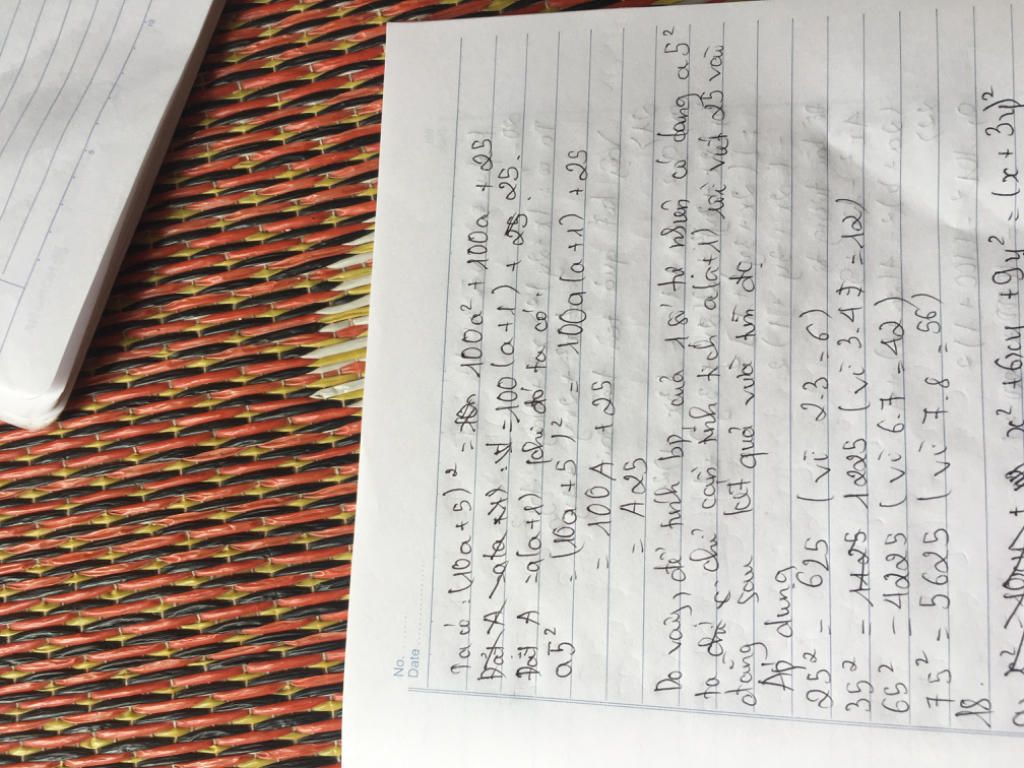 No.
Date
Ta có: (10a + 5)² = 100a² + 100a + 25
= 100(a + 1) + 25.
Đặt A = a(a+1) khi đó ta có:
a5² = (10a + 5)² = 100a(a+1) + 25
= 100A + 25
= A25
Do vậy, để tính bp của 1 số tự nhiên có dạng a5²
ta chỉ cần tính tích a(a+1) rồi viết 25 vào
đằng sau kết quả vừa tìm đc
Áp dụng
25² = 625 (vì 2.3 = 6)
35² = 1225 (vì 3.4 = 12)
65² = 4225 (vì 6.7 = 42)
75² = 5625 (vì 7.8 = 56)
18.
x² + 6xy + 9y² = (x + 3y)²